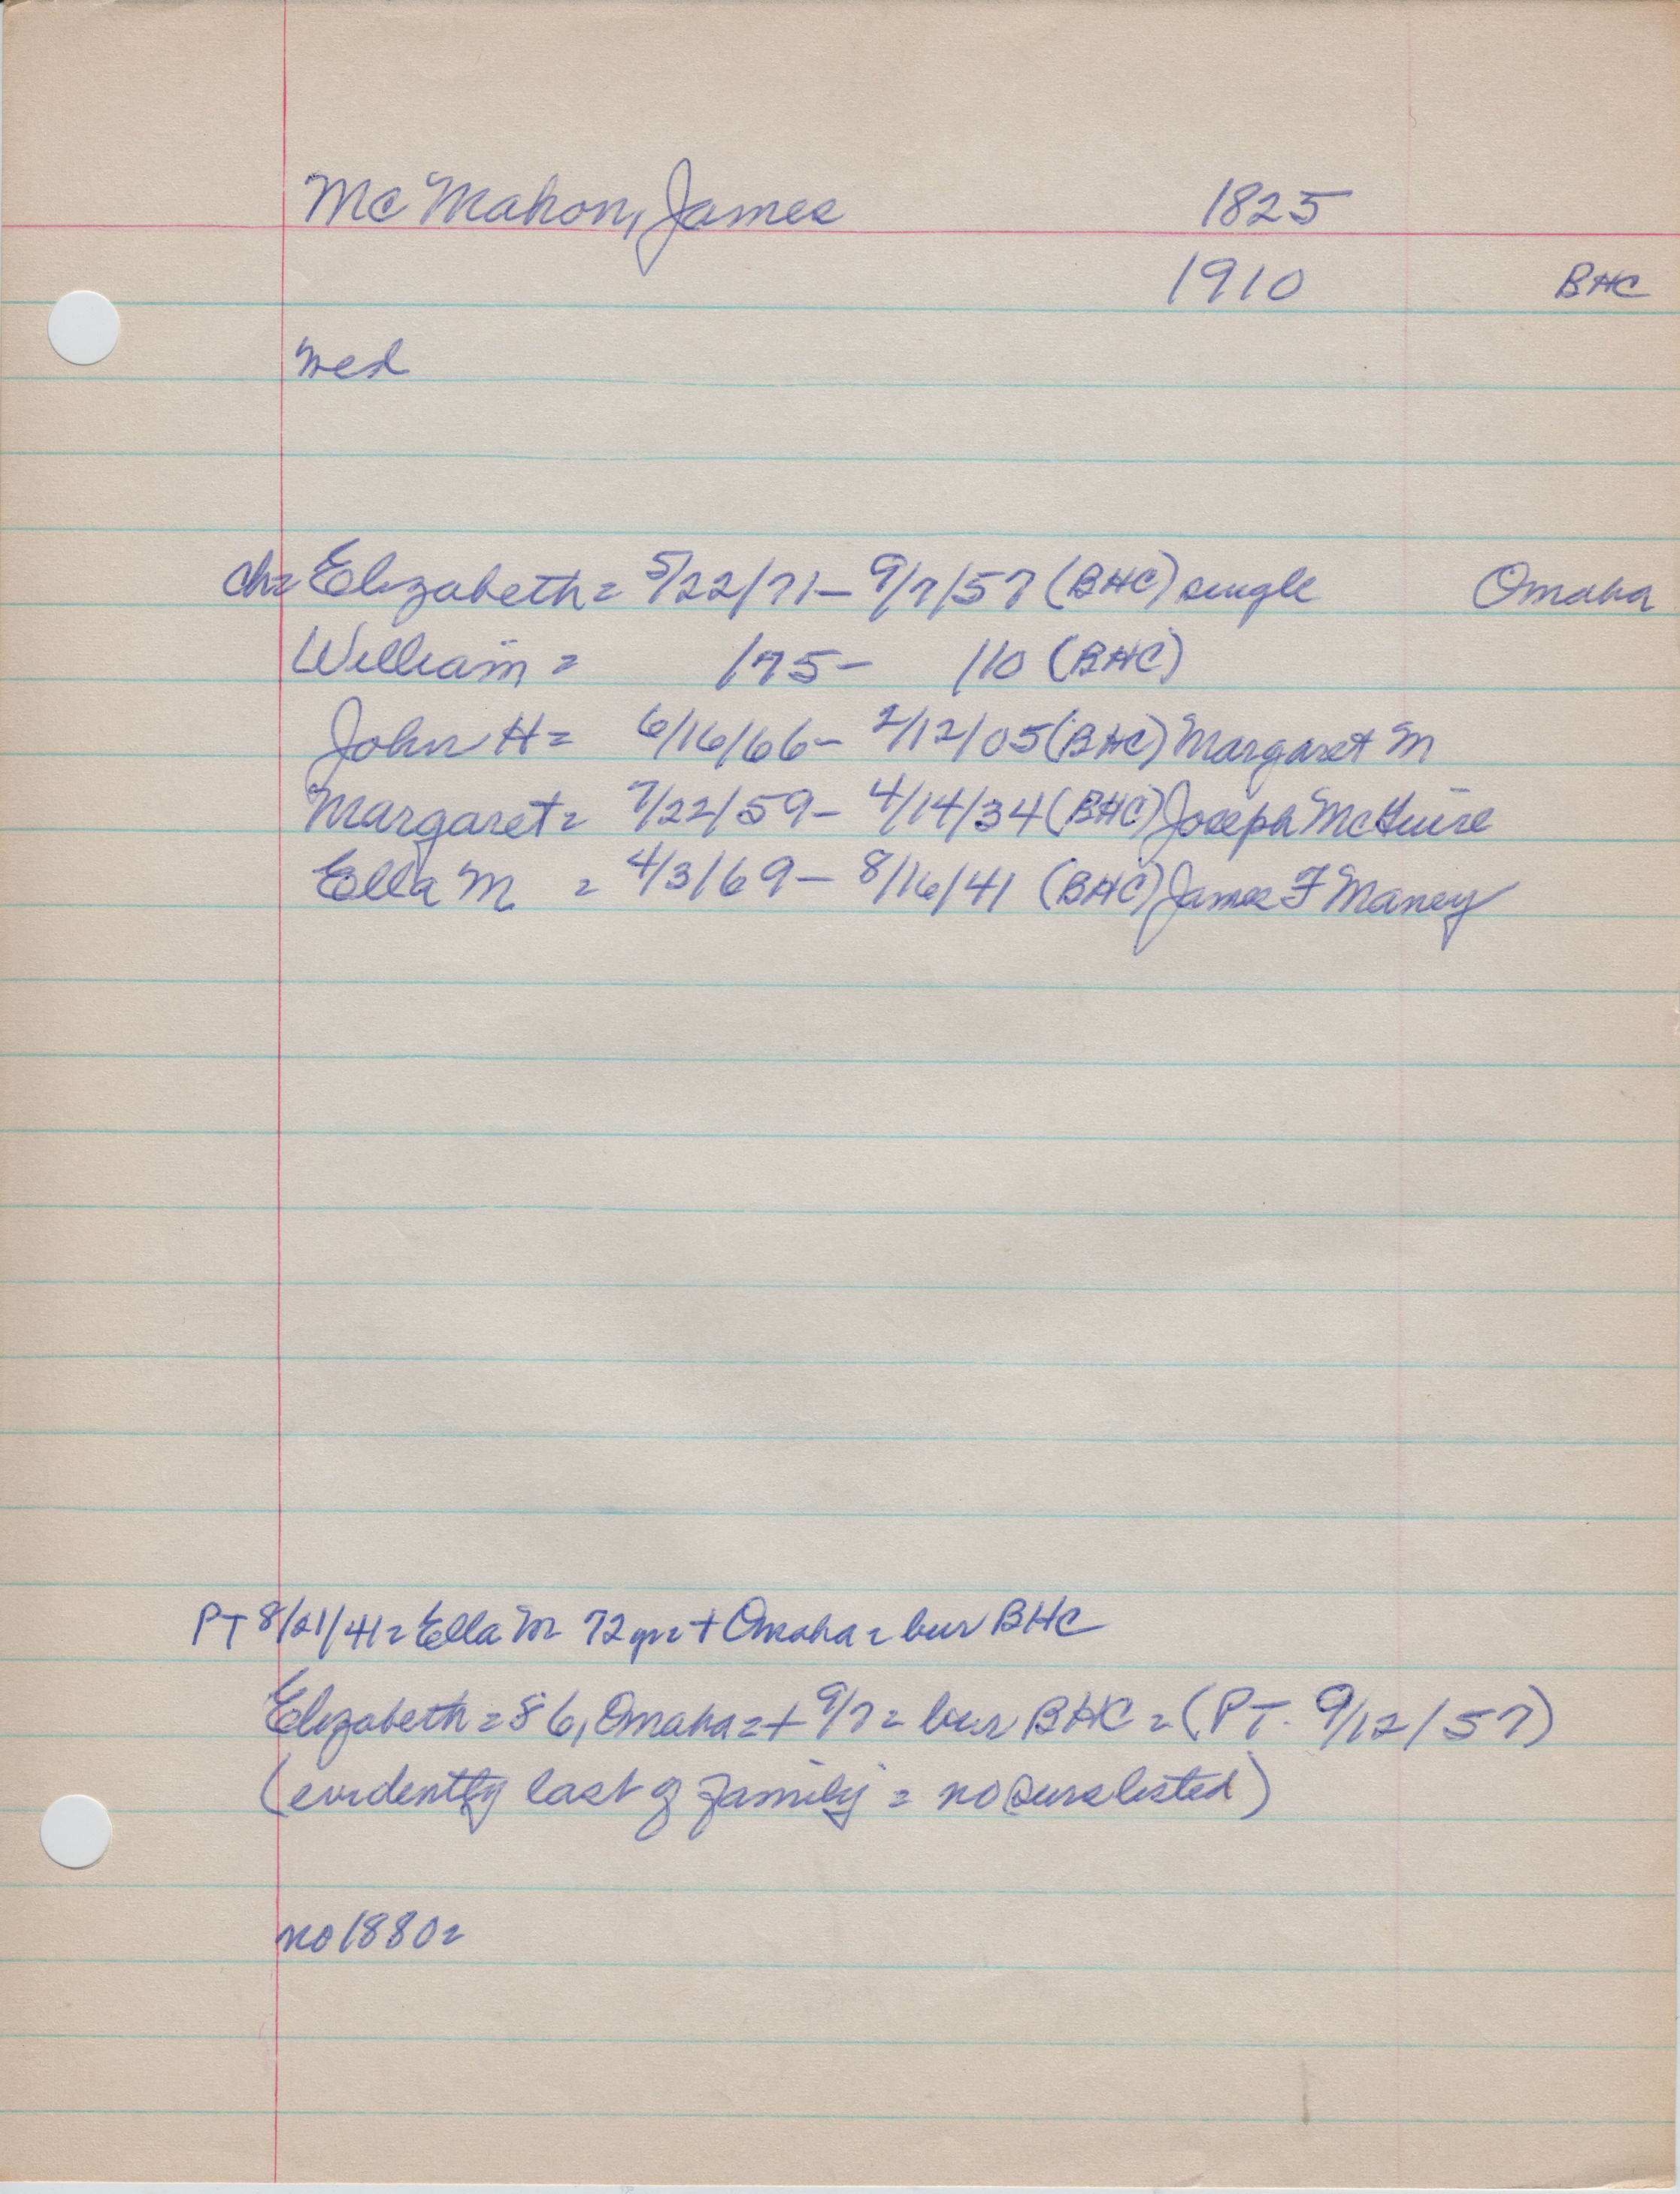 McMahon, James 1825
1910 BHC
med
ch= Elizabeth = 5/22/71 - 9/7/57 (BHC) single Omaha
William = /75 - /10 (BHC)
John H = 6/16/66 - 2/12/05 (BHC) Margaret M
Margaret = 7/22/59 - 4/14/34 (BHC) Joseph McGuire
Ella M = 4/3/69 - 8/16/41 (BHC) James F Maney
PT 8/21/41 = Ella M 72 yrs + Omaha = bur BHC
Elizabeth = 86, Omaha = + 9/7 = bur BHC = (PT. 9/12/57)
(evidently last of family = no surs listed)
no 1880 =